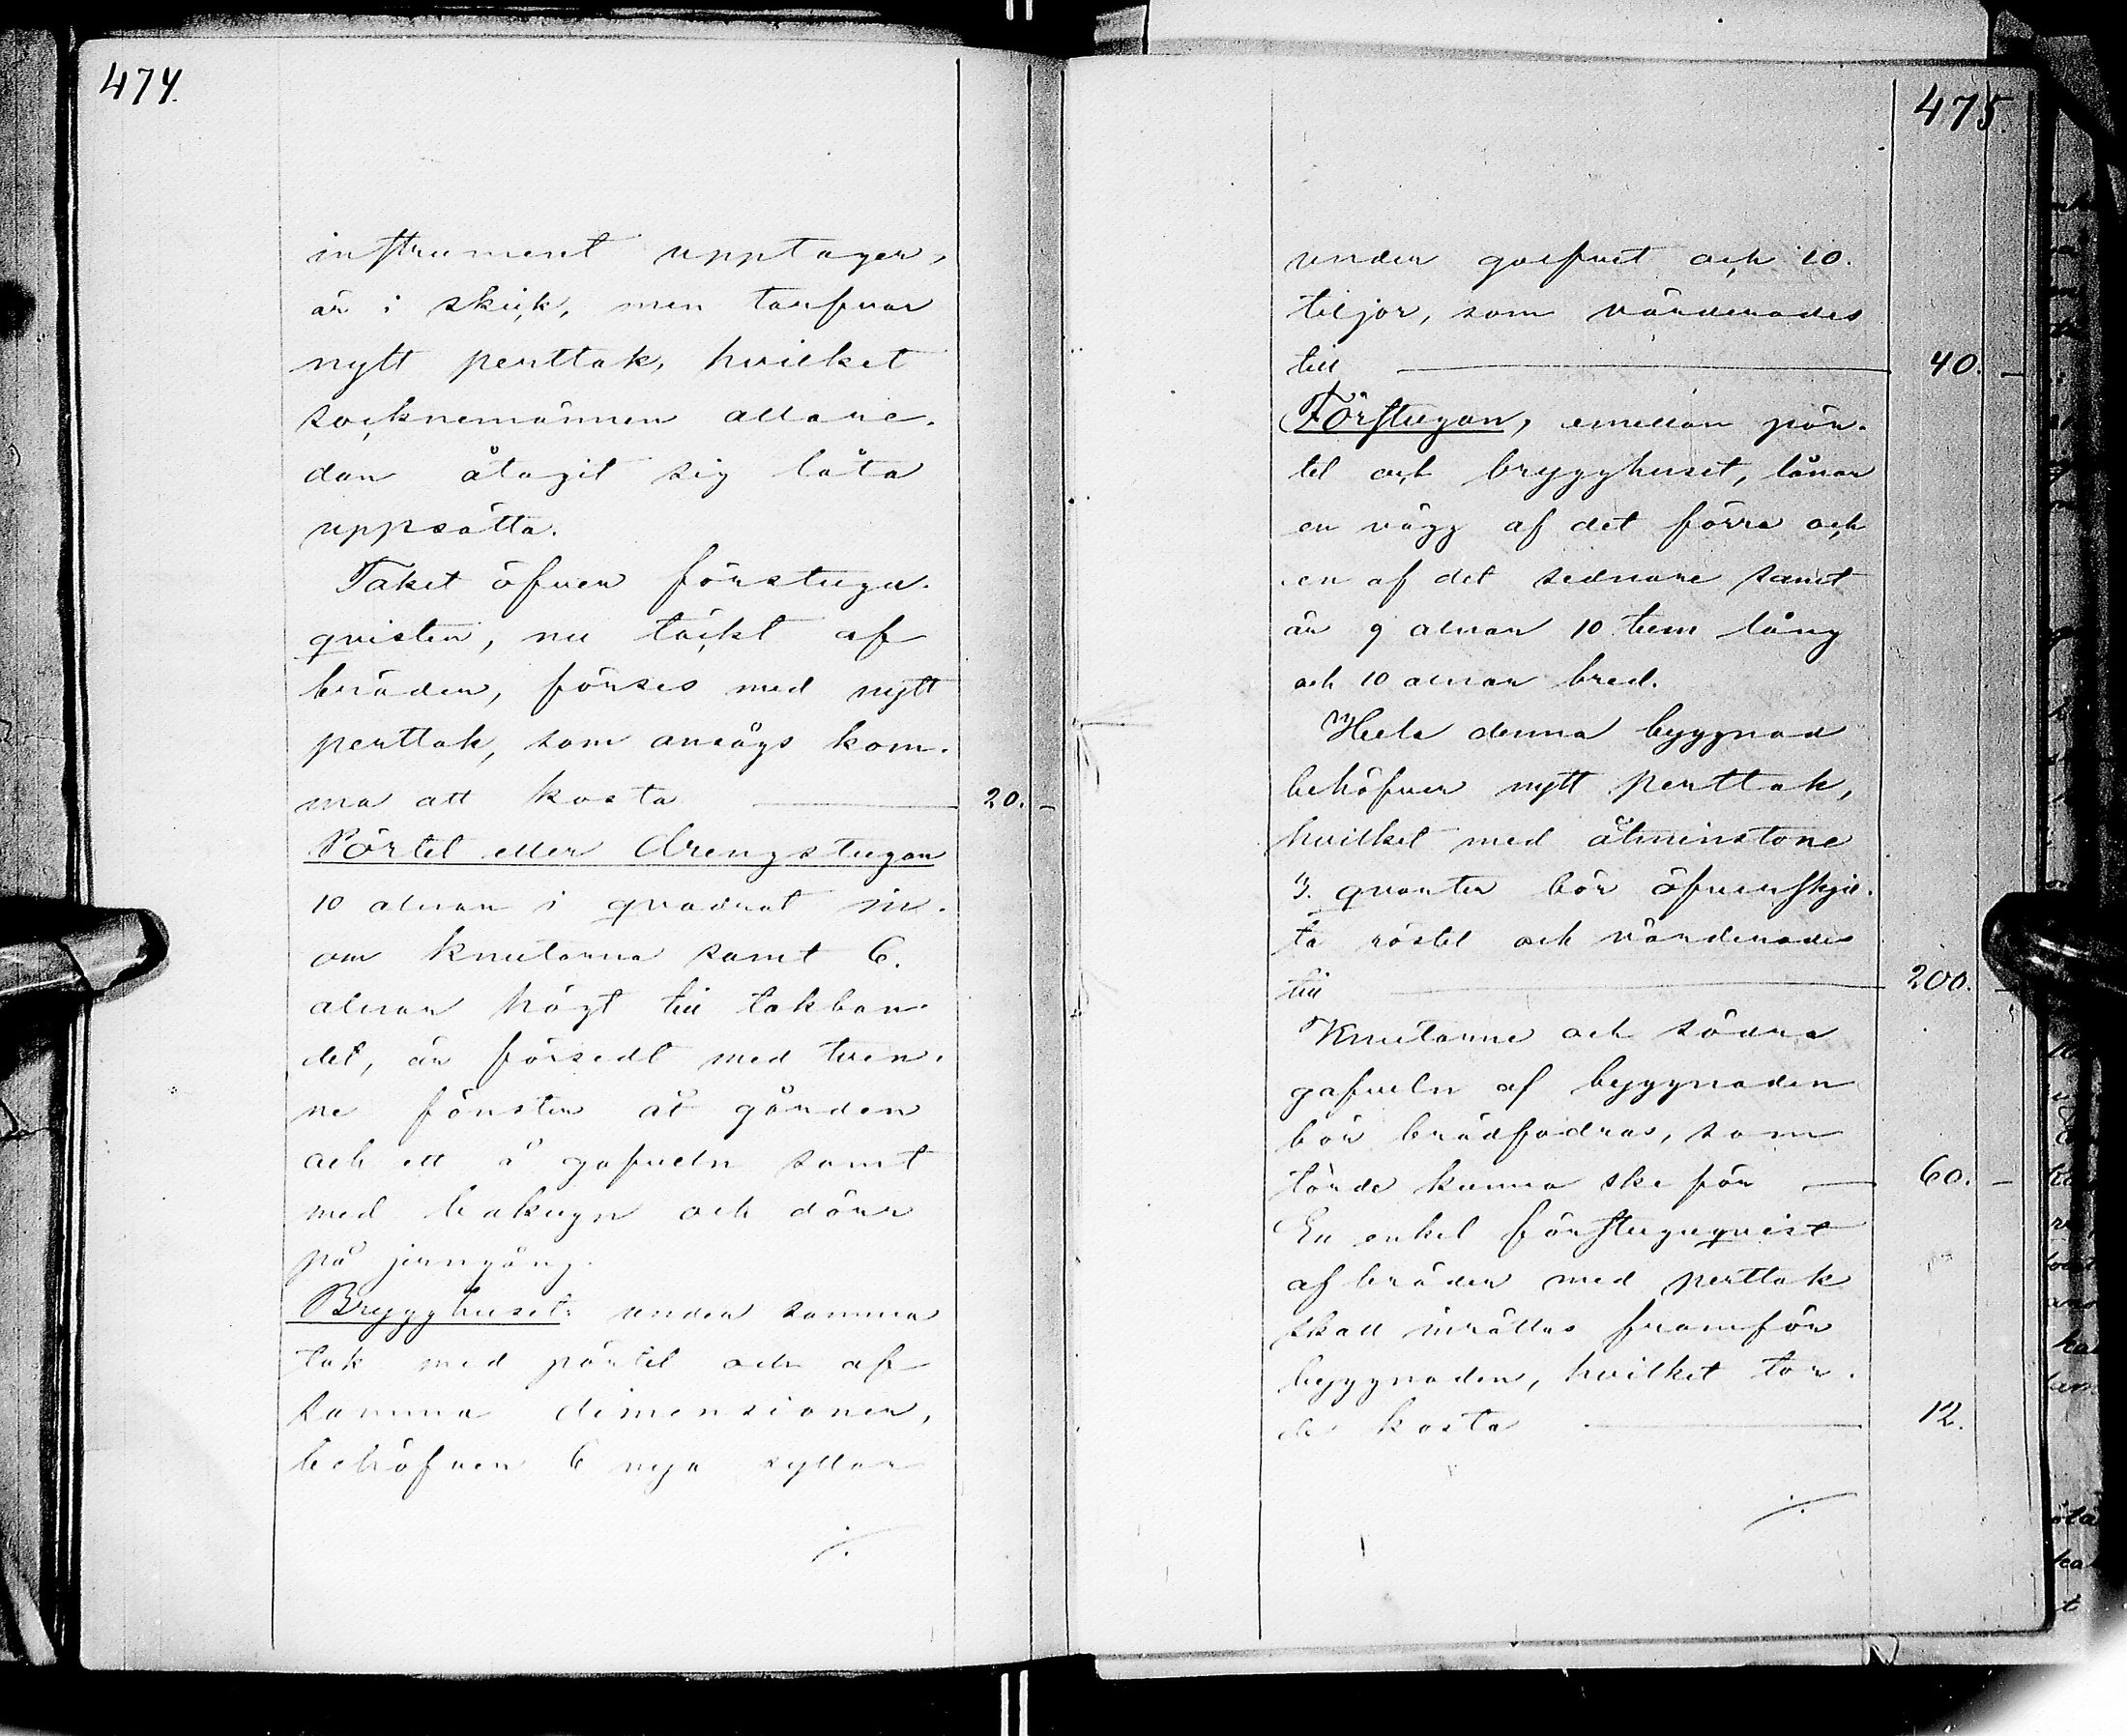 474.
instrument upptager,
är i skick, men tarfvar
nytt perttak, hvilket
socknemännen allare-
dan åtagit sig låta
uppsätta.
Taket öfver förstugu-
qvisten, nu täckt af
bräder, förses med nytt
perttak, som ansågs kom-
ma att kosta 20. -
Pörtet eller drengstugan
10 alnar i quadrat in-
om knutarna samt 6.
alnar högt till takban-
det, är försedt med tven-
ne fönster åt gården
och ett å gafveln samt
med bakugn och dörr
på jerngång.
Brygghuset under samma
tak med pörtet och af
samma dimensioner,
behöfver 6 nya syllar
./.
475.
under golfvet och 10.
tiljor, som värderades
till 40. -
Förstugan, emellan pör-
tet och brygghuset, lånar
en vägg af det förra och
en af det sednare samt
är 9 alnar 10 tum lång
och 10 alnar bred.
Hela denna byggnad
behöfver nytt perttak,
hvilket med åtminstone
3. qvarter bör öfverskju-
ta röstet och värderades
till 200. -
Knutarne och södra
gafveln af byggnaden
bör brädfodras, som
törde kunna ske för 60. -
En enkel förstuguqvist
af bräder med perttak
skall inrättas framför
byggnaden, hvilket tor-
de kosta 12.
./.